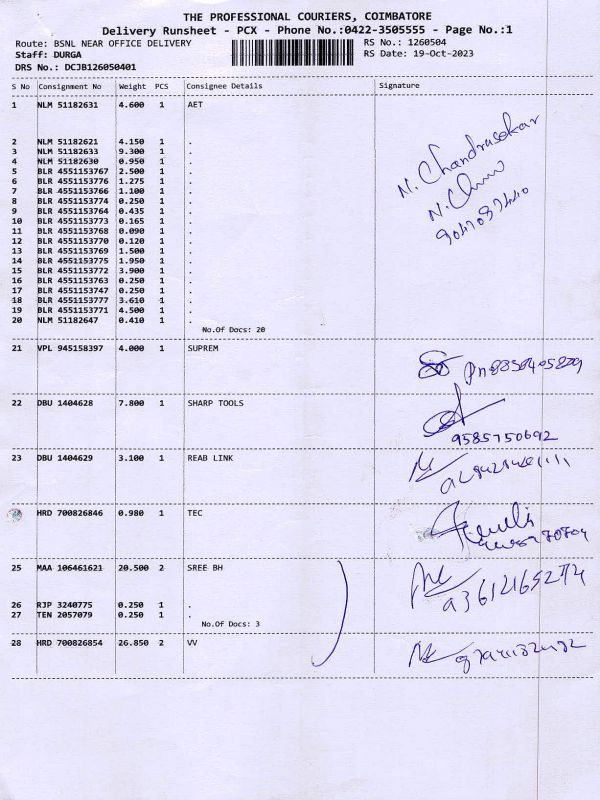 THE PROFESSIONAL COURIERS, COIMBATORE
Delivery Runsheet - PCX - Phone No.:0422-3505555 - Page No.:1
Route: BSNL NEAR OFFICE DELIVERY RS No.: 1260504
Staff: DURGA RS Date: 19-Oct-2023
DRS No.: DCJB126050401
S No Consignment No Weight PCS Consignee Details Signature
1 NLM 51182631 4.600 1 AET
N. Chandrasekar
2 NLM 51182621 4.150 1 .
3 NLM 51182633 9.300 1 .
4 NLM 51182630 0.950 1 .
5 BLR 4551153767 2.500 1 .
6 BLR 4551153776 1.275 1 .
7 BLR 4551153766 1.100 1 .
8 BLR 4551153774 0.250 1 .
9 BLR 4551153764 0.435 1 .
10 BLR 4551153773 0.165 1 .
11 BLR 4551153768 0.090 1 .
12 BLR 4551153770 0.120 1 .
13 BLR 4551153769 1.500 1 .
14 BLR 4551153775 1.950 1 .
15 BLR 4551153772 3.900 1 .
16 BLR 4551153763 0.250 1 .
17 BLR 4551153747 0.250 1 .
18 BLR 4551153777 3.610 1 .
19 BLR 4551153771 4.500 1 .
20 NLM 51182647 0.410 1 .
No.Of Docs: 20
21 VPL 945158397 4.000 1 SUPREM
22 DBU 1404628 7.800 1 SHARP TOOLS
9585750692
23 DBU 1404629 3.100 1 REAB LINK
24 HRD 700826846 0.980 1 TEC
25 MAA 106461621 20.500 2 SREE BH
26 RJP 3240775 0.250 1 .
27 TEN 2057079 0.250 1 .
No.Of Docs: 3
28 HRD 700826854 26.850 2 VV